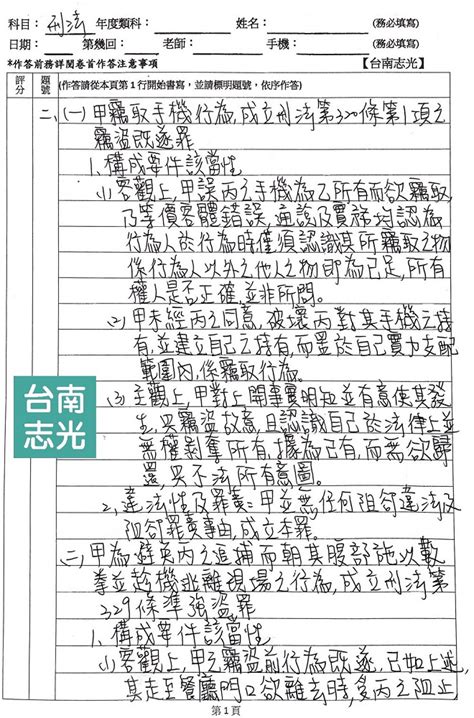 科目：刑法 年度類科： 姓名： (務必填寫)
日期： 第幾回： 老師： 手機： (務必填寫)
*作答前務詳閱卷首作答注意事項 【台南志光】
評分 題號 (作答請從本頁第1行開始書寫，並請標明題號，依序作答)
二、(一)甲竊取手機行為，成立刑法第320條第1項之
竊盜既遂罪
1.構成要件該當性
(1)客觀上，甲誤丙之手機為乙所有而欲竊取
乃等價客體錯誤，通說及實務均認為
行為人於行為時僅須認識其所竊取之物
係行為人以外之他人之物即為已足，所有
權人是否正確，並非所問。
(2)甲未經丙之同意，破壞丙對其手機之持
有，並建立自己之持有，而置於自己實力支配
範圍內，係竊取行為。
(3)主觀上，甲對上開事實明知並有意使其發
生，具竊盜故意，且認識自己於法律上並
無權剝奪所有，據為己有，而無欲歸
還，具不法所有意圖。
2.違法性及罪責：甲並無任何阻卻違法及
阻卻罪責事由，成立本罪。
(二)甲為避免丙之追捕而朝其腹部施以數
拳並趁機逃離現場之行為，成立刑法第
329條準強盜罪
1.構成要件該當性
(1)客觀上，甲之竊盜前行為既遂，已如上述，
其走至餐廳門口欲離去時，多丙之阻止
第1頁
台南
志光